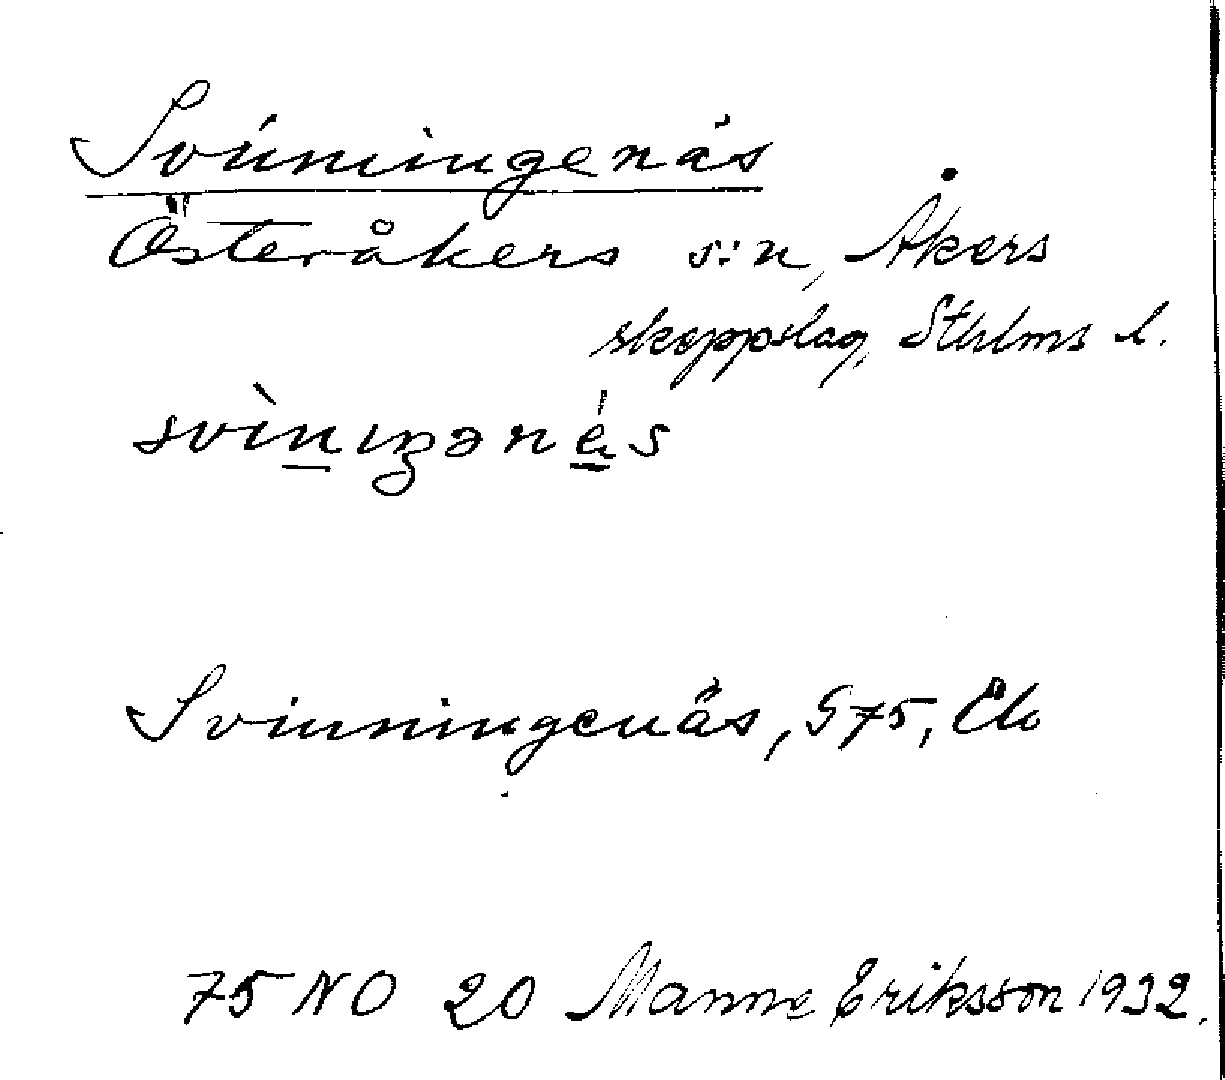 Svinningenäs
Österåkers s:n, Åkers
skeppslag, Sthlms l.
svìnıŋənä́s
Svinningenäs, G75, Ek
75 NO 20 Manne Eriksson 1932.